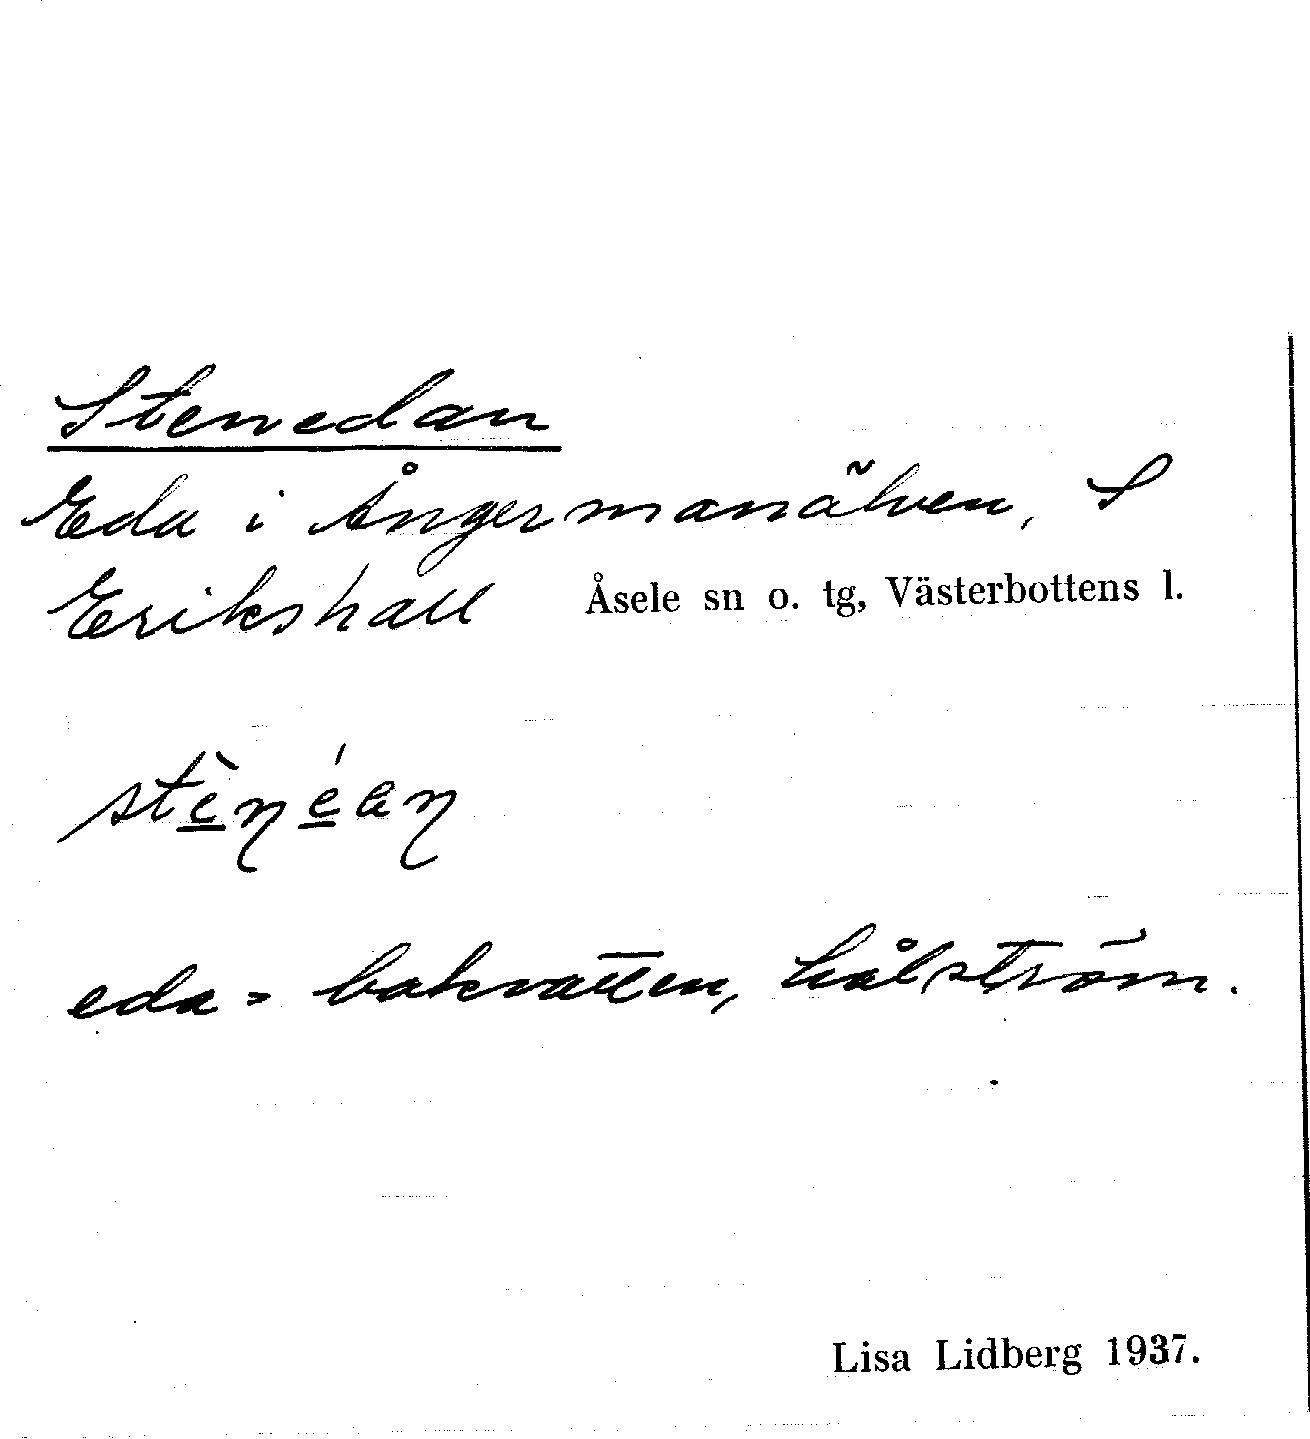 Stenedan
Eda i Ångermanälven, S
Erikshall Åsele sn o. tg, Västerbottens l.
stè̲ŋé̲an
eda = bakvatten, hålström.
Lisa Lidberg 1937.